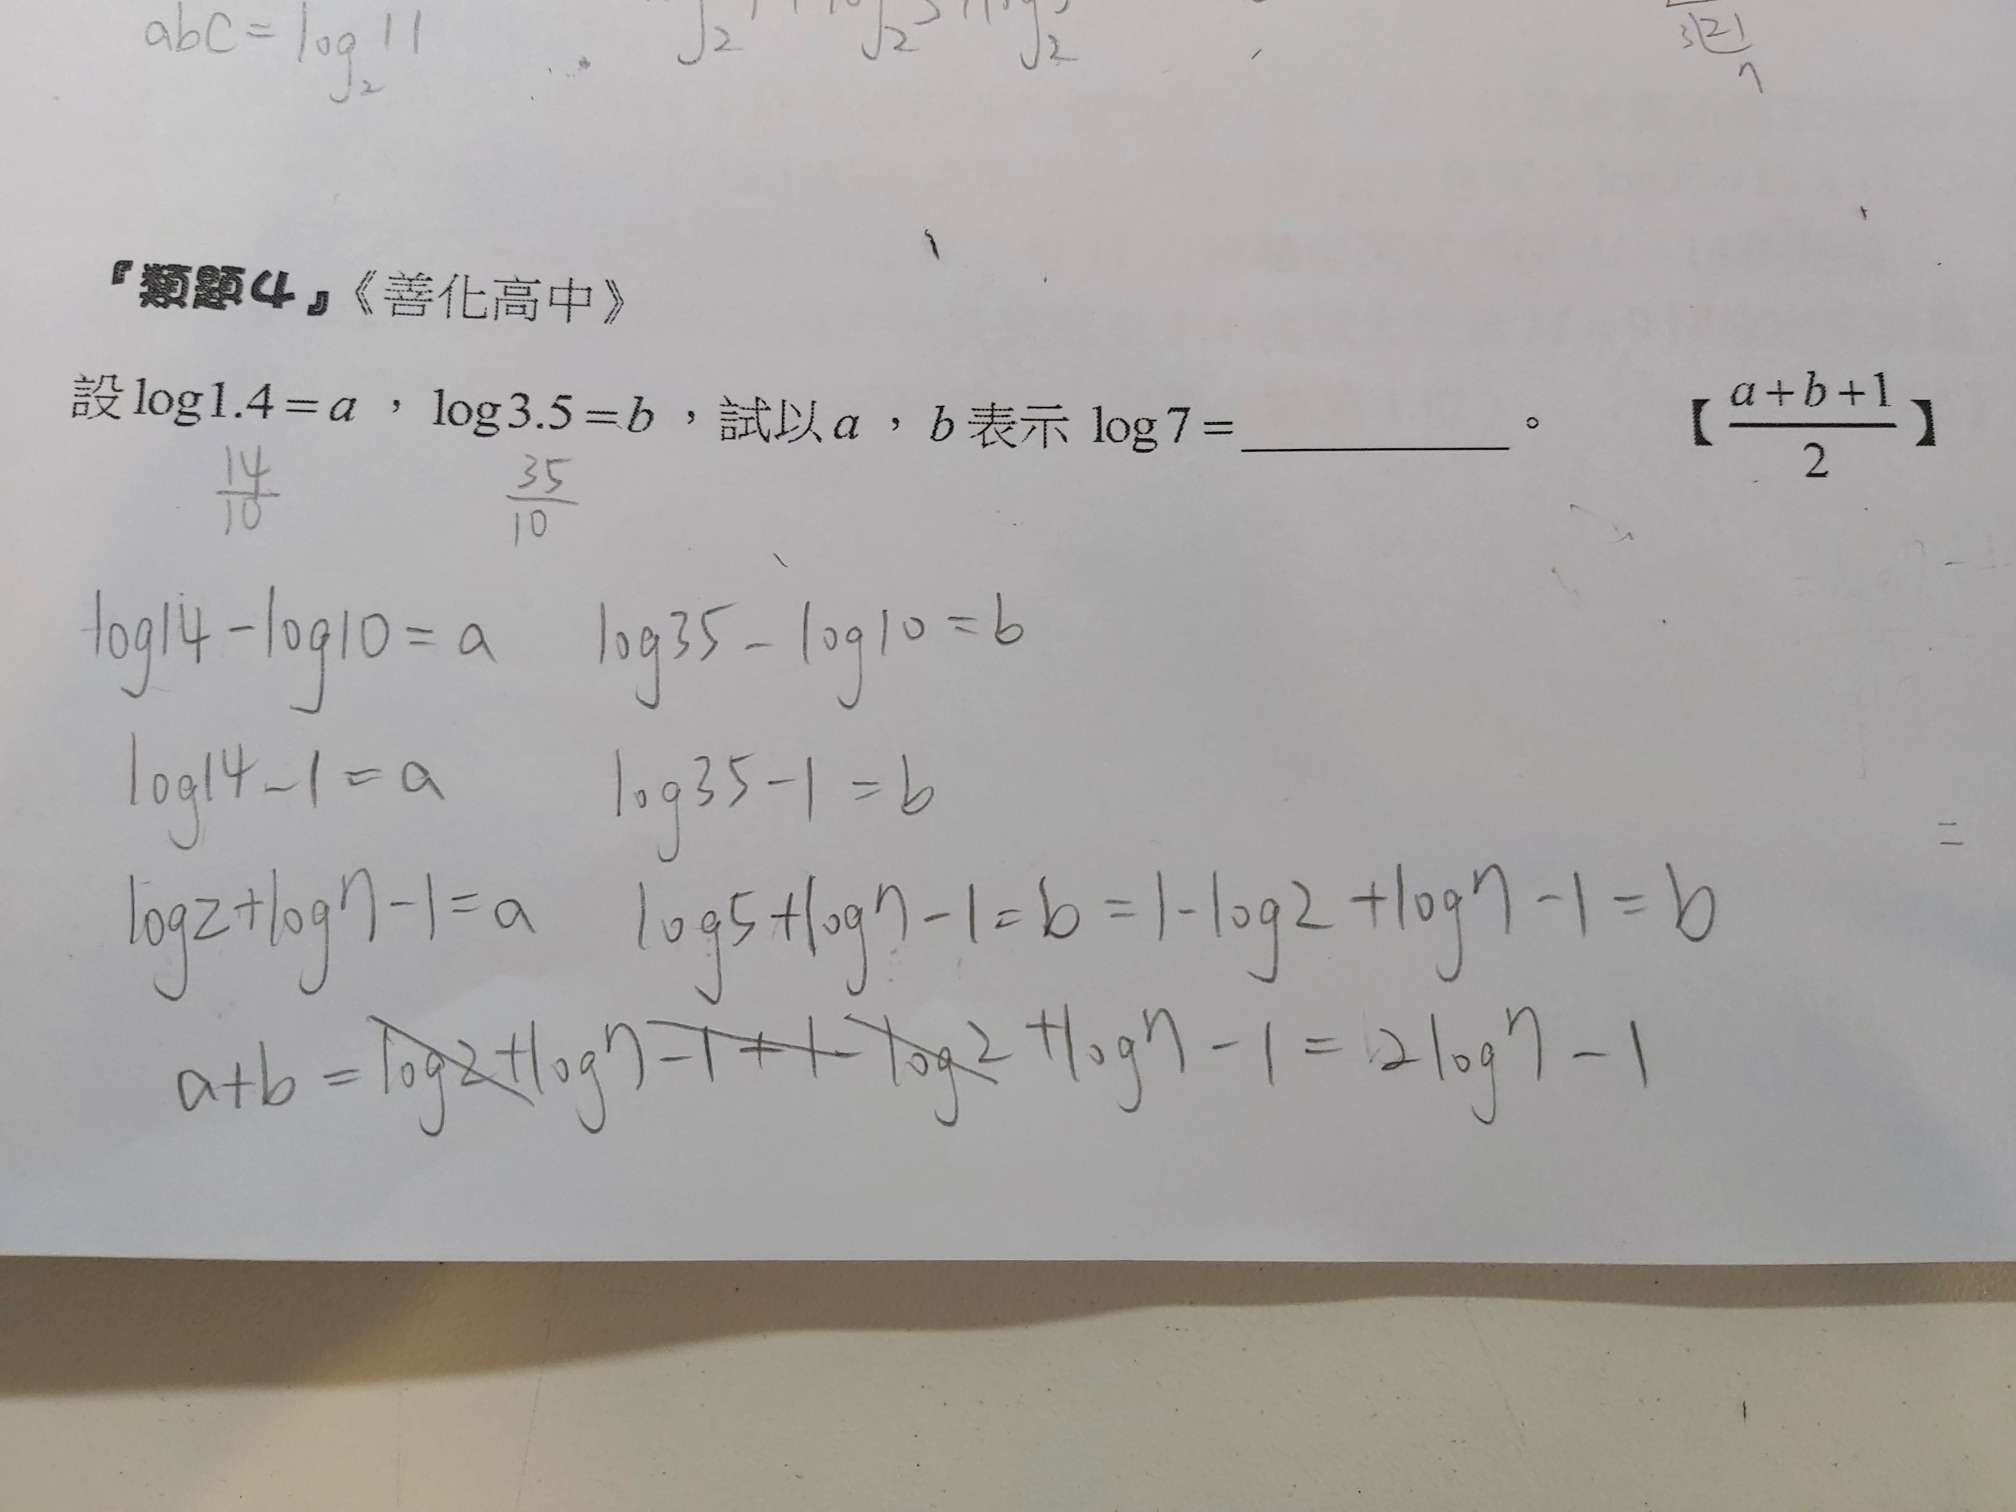 abc = log₂11
3 21
7
『類題4』《善化高中》
設log1.4=a，log3.5=b，試以a，b表示 log7=________。 【(a+b+1)/2】
14/10 35/10
log14-log10=a log35-log10=b
log14-1=a log35-1=b
log2+log7-1=a log5+log7-1=b=1-log2+log7-1=b
a+b=log2+log7-1+1-log2+log7-1=2log7-1